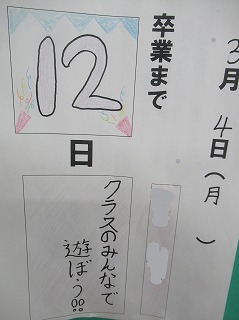 3月4日(月)
卒業まで
12
日
クラスのみんなで
遊ぼう!!